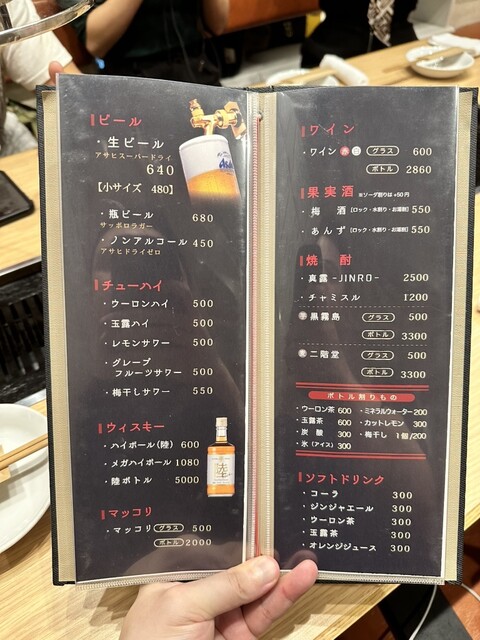 ビール
・生ビール
アサヒスーパードライ
640
【小サイズ 480】
・瓶ビール 680
サッポロラガー
・ノンアルコール 450
アサヒドライゼロ
チューハイ
・ウーロンハイ 500
・玉露ハイ 500
・レモンサワー 500
・グレープ
フルーツサワー 500
・梅干しサワー 550
ウィスキー
・ハイボール(陸) 600
・メガハイボール 1080
・陸ボトル 5000
陸
マッコリ
・マッコリ グラス 500
ボトル 2000
Asahi
ワイン
・ワイン 赤 白 グラス 600
ボトル 2860
果実酒 ※ソーダ割りは+50円
・梅 酒 [ロック・水割り・お湯割] 550
・あんず [ロック・水割り・お湯割] 550
焼 酎
・真露-JINRO- 2500
・チャミスル 1200
芋 黒霧島 グラス 500
ボトル 3300
麦 二階堂 グラス 500
ボトル 3300
ボトル割りもの
・ウーロン茶 600 ・ミネラルウォーター 200
・玉露茶 600 ・カットレモン 300
・炭 酸 300 ・梅干し 1個/200
・氷(アイス) 300
ソフトドリンク
・コーラ 300
・ジンジャエール 300
・ウーロン茶 300
・玉露茶 300
・オレンジジュース 300